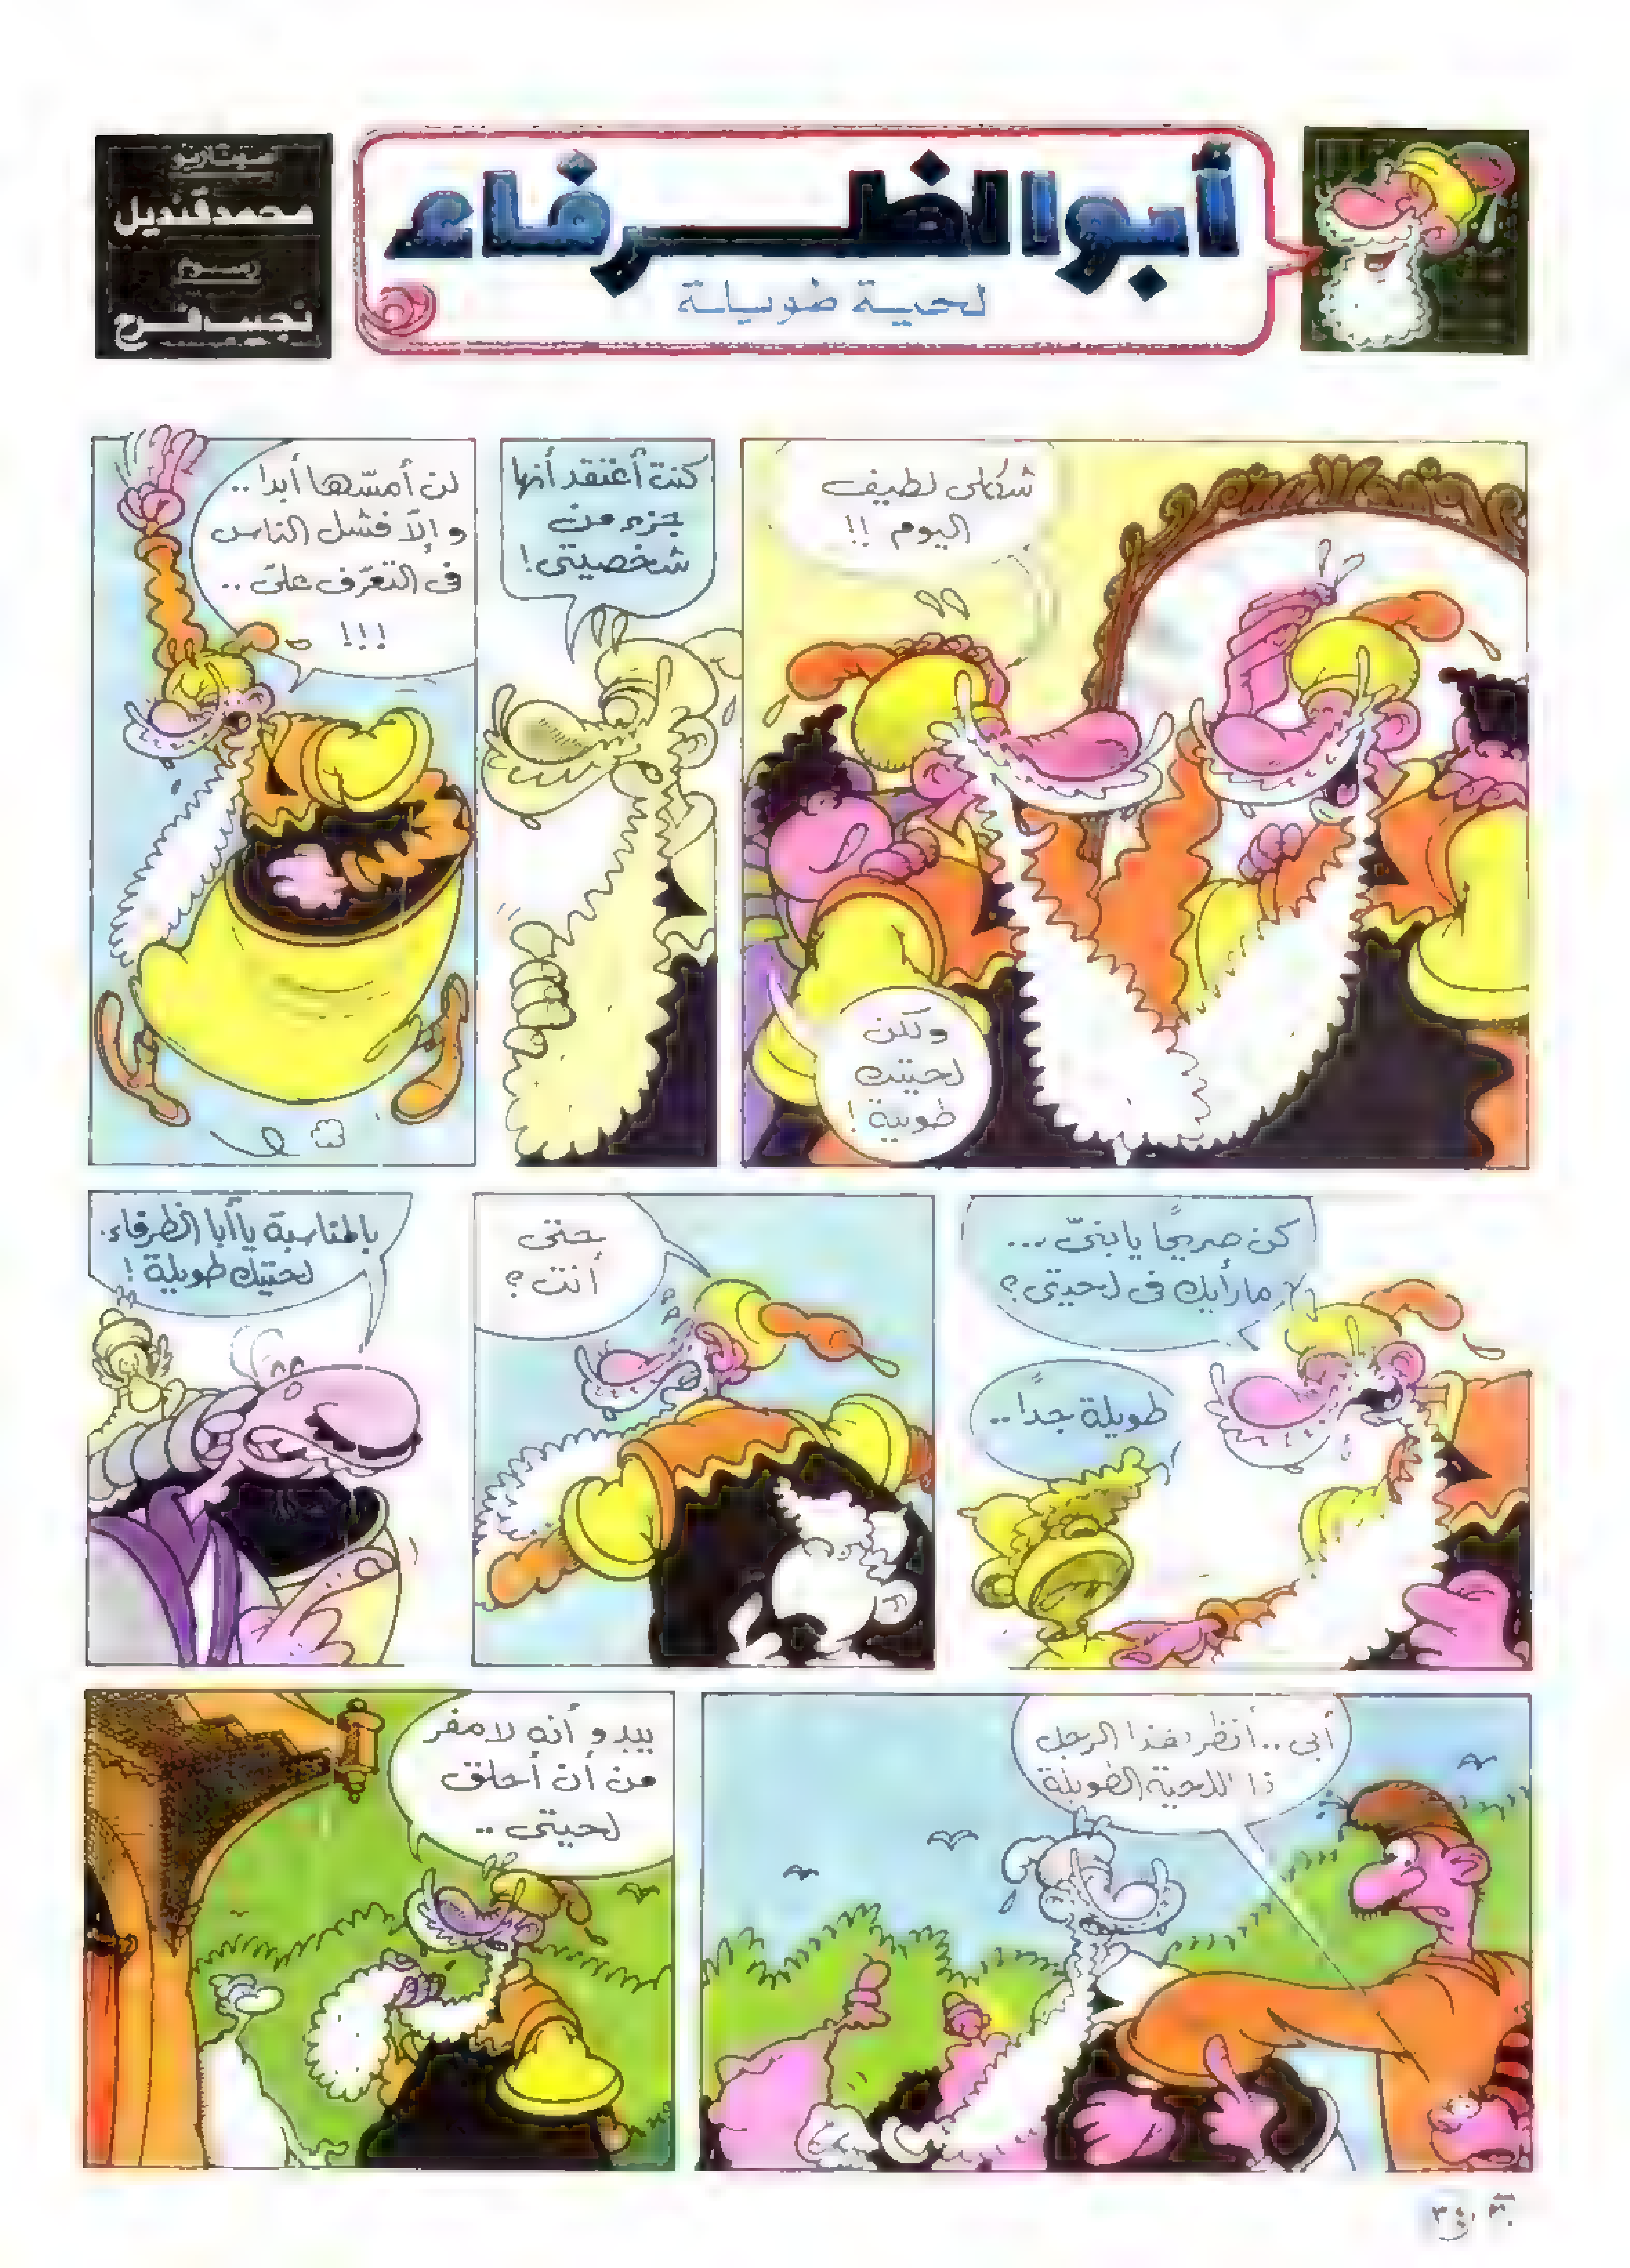 أبو الظرفاء
لحية طويلة
سيناريو
محمد قنديل
رسوم
نجيب فرح
شكلى لطيف
اليوم !!
ولكن
لحيتك
طويلة !
كنت أعتقد أنها
جزء من
شخصيتى !
لن أمسّها أبدا ..
و إلاّ فشل الناس
فى التعرّف علىّ ..
!!!
كن صريحًا يا بنىّ ...
ما رأيك فى لحيتى ؟
طويلة جدًا ..
حتى
أنت ؟
بالمناسبة يا أبا الظرفاء .
لحيتك طويلة !
أبى .. أنظر هذا الرجل
ذا اللحية الطويلة
يبدو أنه لا مفر
من أن أحلق
لحيتى ..